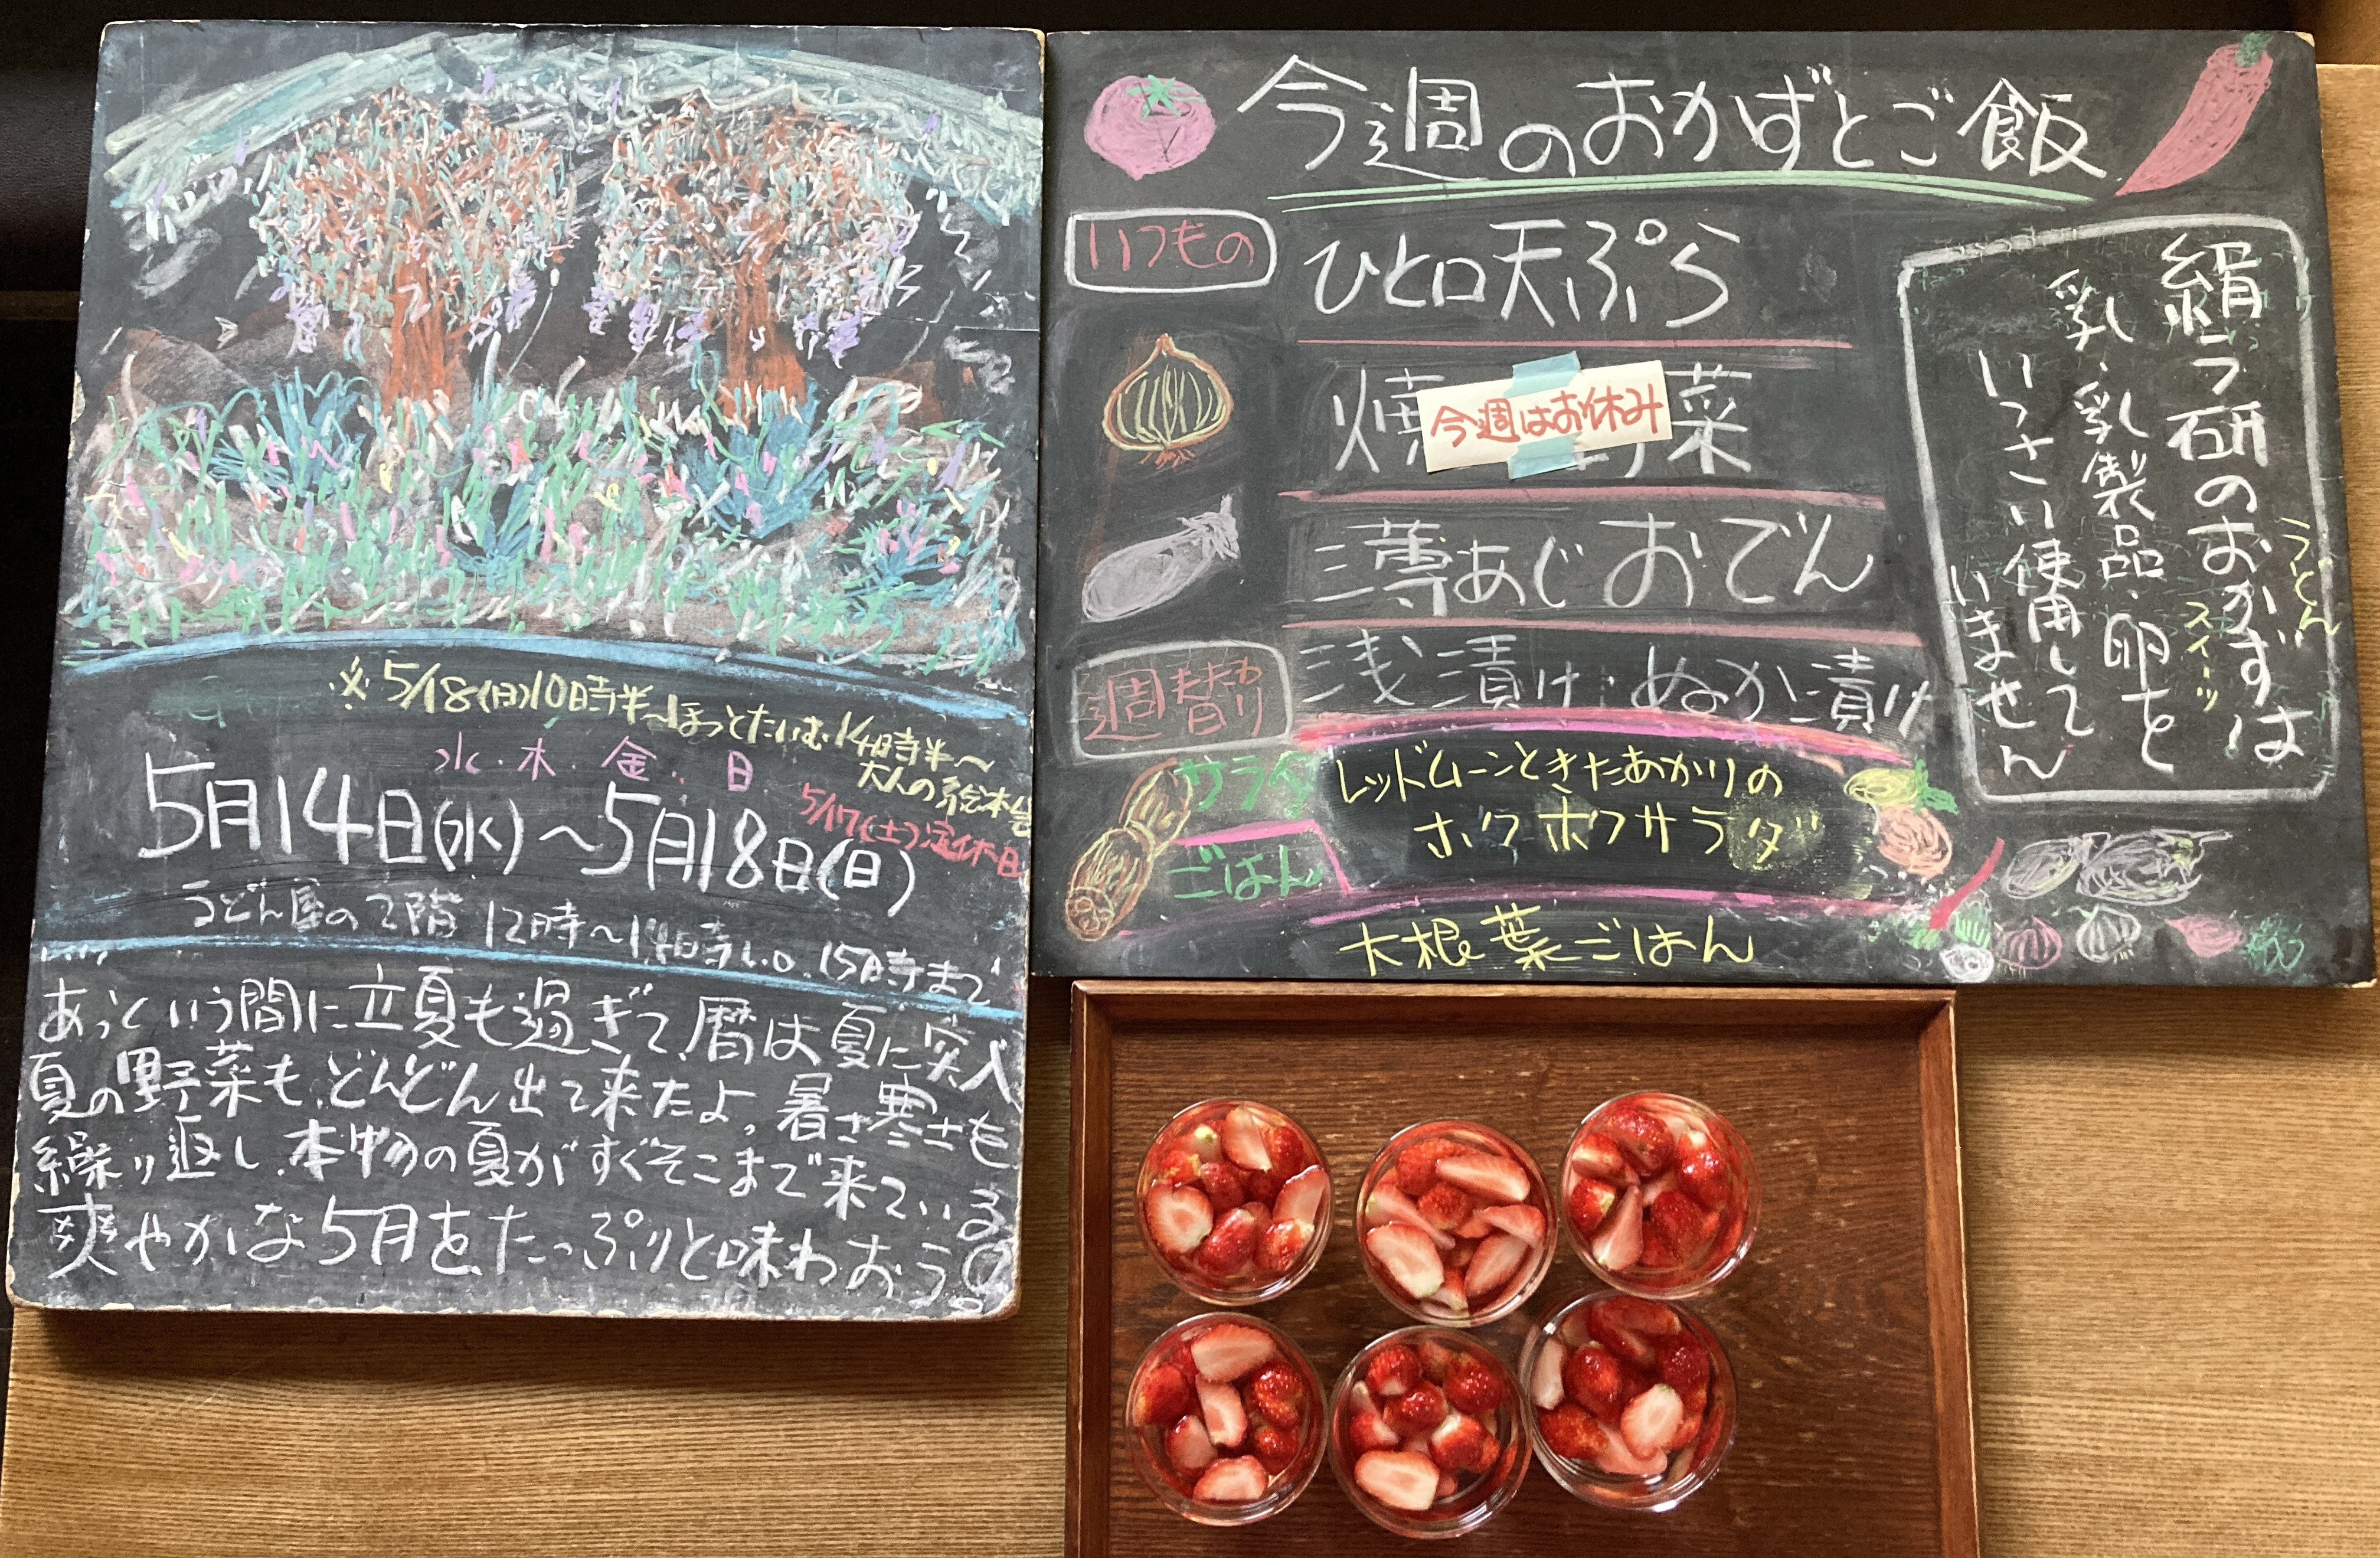 ※5/18(日)10時半〜ほっとたいむ 14時半〜
大人の絵本会
水・木・金・日
5/17(土)定休日
5月14日(水)〜5月18日(日)
うどん屋の2階 12時〜14時L.O. 15時まで
あっという間に立夏も過ぎて、暦は夏に突入
夏の野菜も、どんどん出て来たよ。暑さ寒さを
繰り返し、本物の夏がすぐそこまで来ている
爽やかな5月をたっぷりと味わおう。
今週のおかずとご飯
いつもの
ひと口天ぷら
焼 菜
今週はお休み
薄あじおでん
週替わり
浅漬け・ぬか漬け
サラダ
レッドムーンときたあかりの
ホクホクサラダ
ごはん
大根葉ごはん
絹ラ研のおかずは
うどん
スイーツ
乳・乳製品・卵を
いっさい使用して
いません